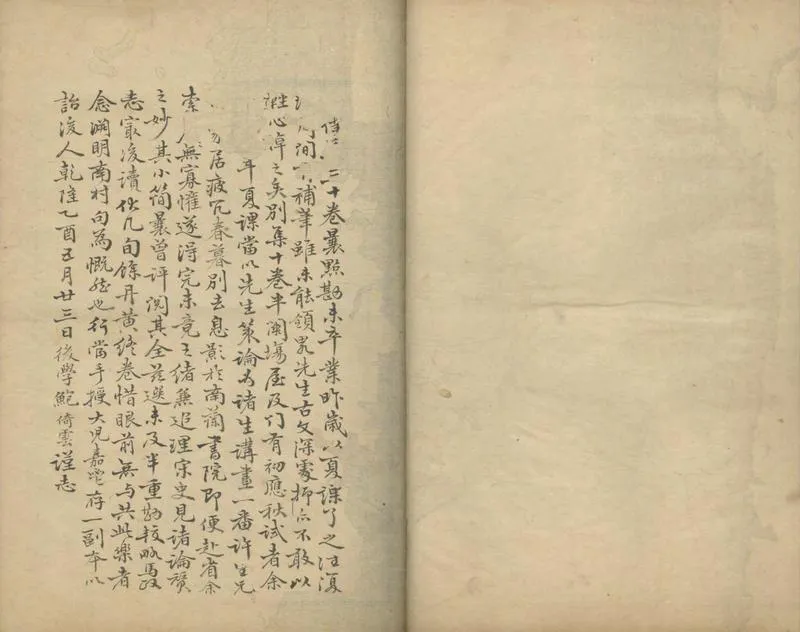 二十卷曩點勘未卒業昨歲以夏課了之注復
間補筆雖未能領畧先生古文深處抑亦不敢以
心草之矣別集十卷半闈場屋及門有初應秋試者余
年夏課當以先生策論为諸生講畫一番許生兄
居疲冗春暮別去息影於南蘭書院即便赴省余
索 無寡懽遂得完未竟之緒兼追理宗史見諸論贊
之妙其小簡曩曾評閱其全茲選未及半重勘校略爲
志寂後讀 凡旬餘丹黃終卷惜眼前無与共此樂者
念淵明南村句為慨然也行當手授大兒嘉 存一副本以
詒後人乾隆乙酉五月廿三日後學鮑倚雲謹志